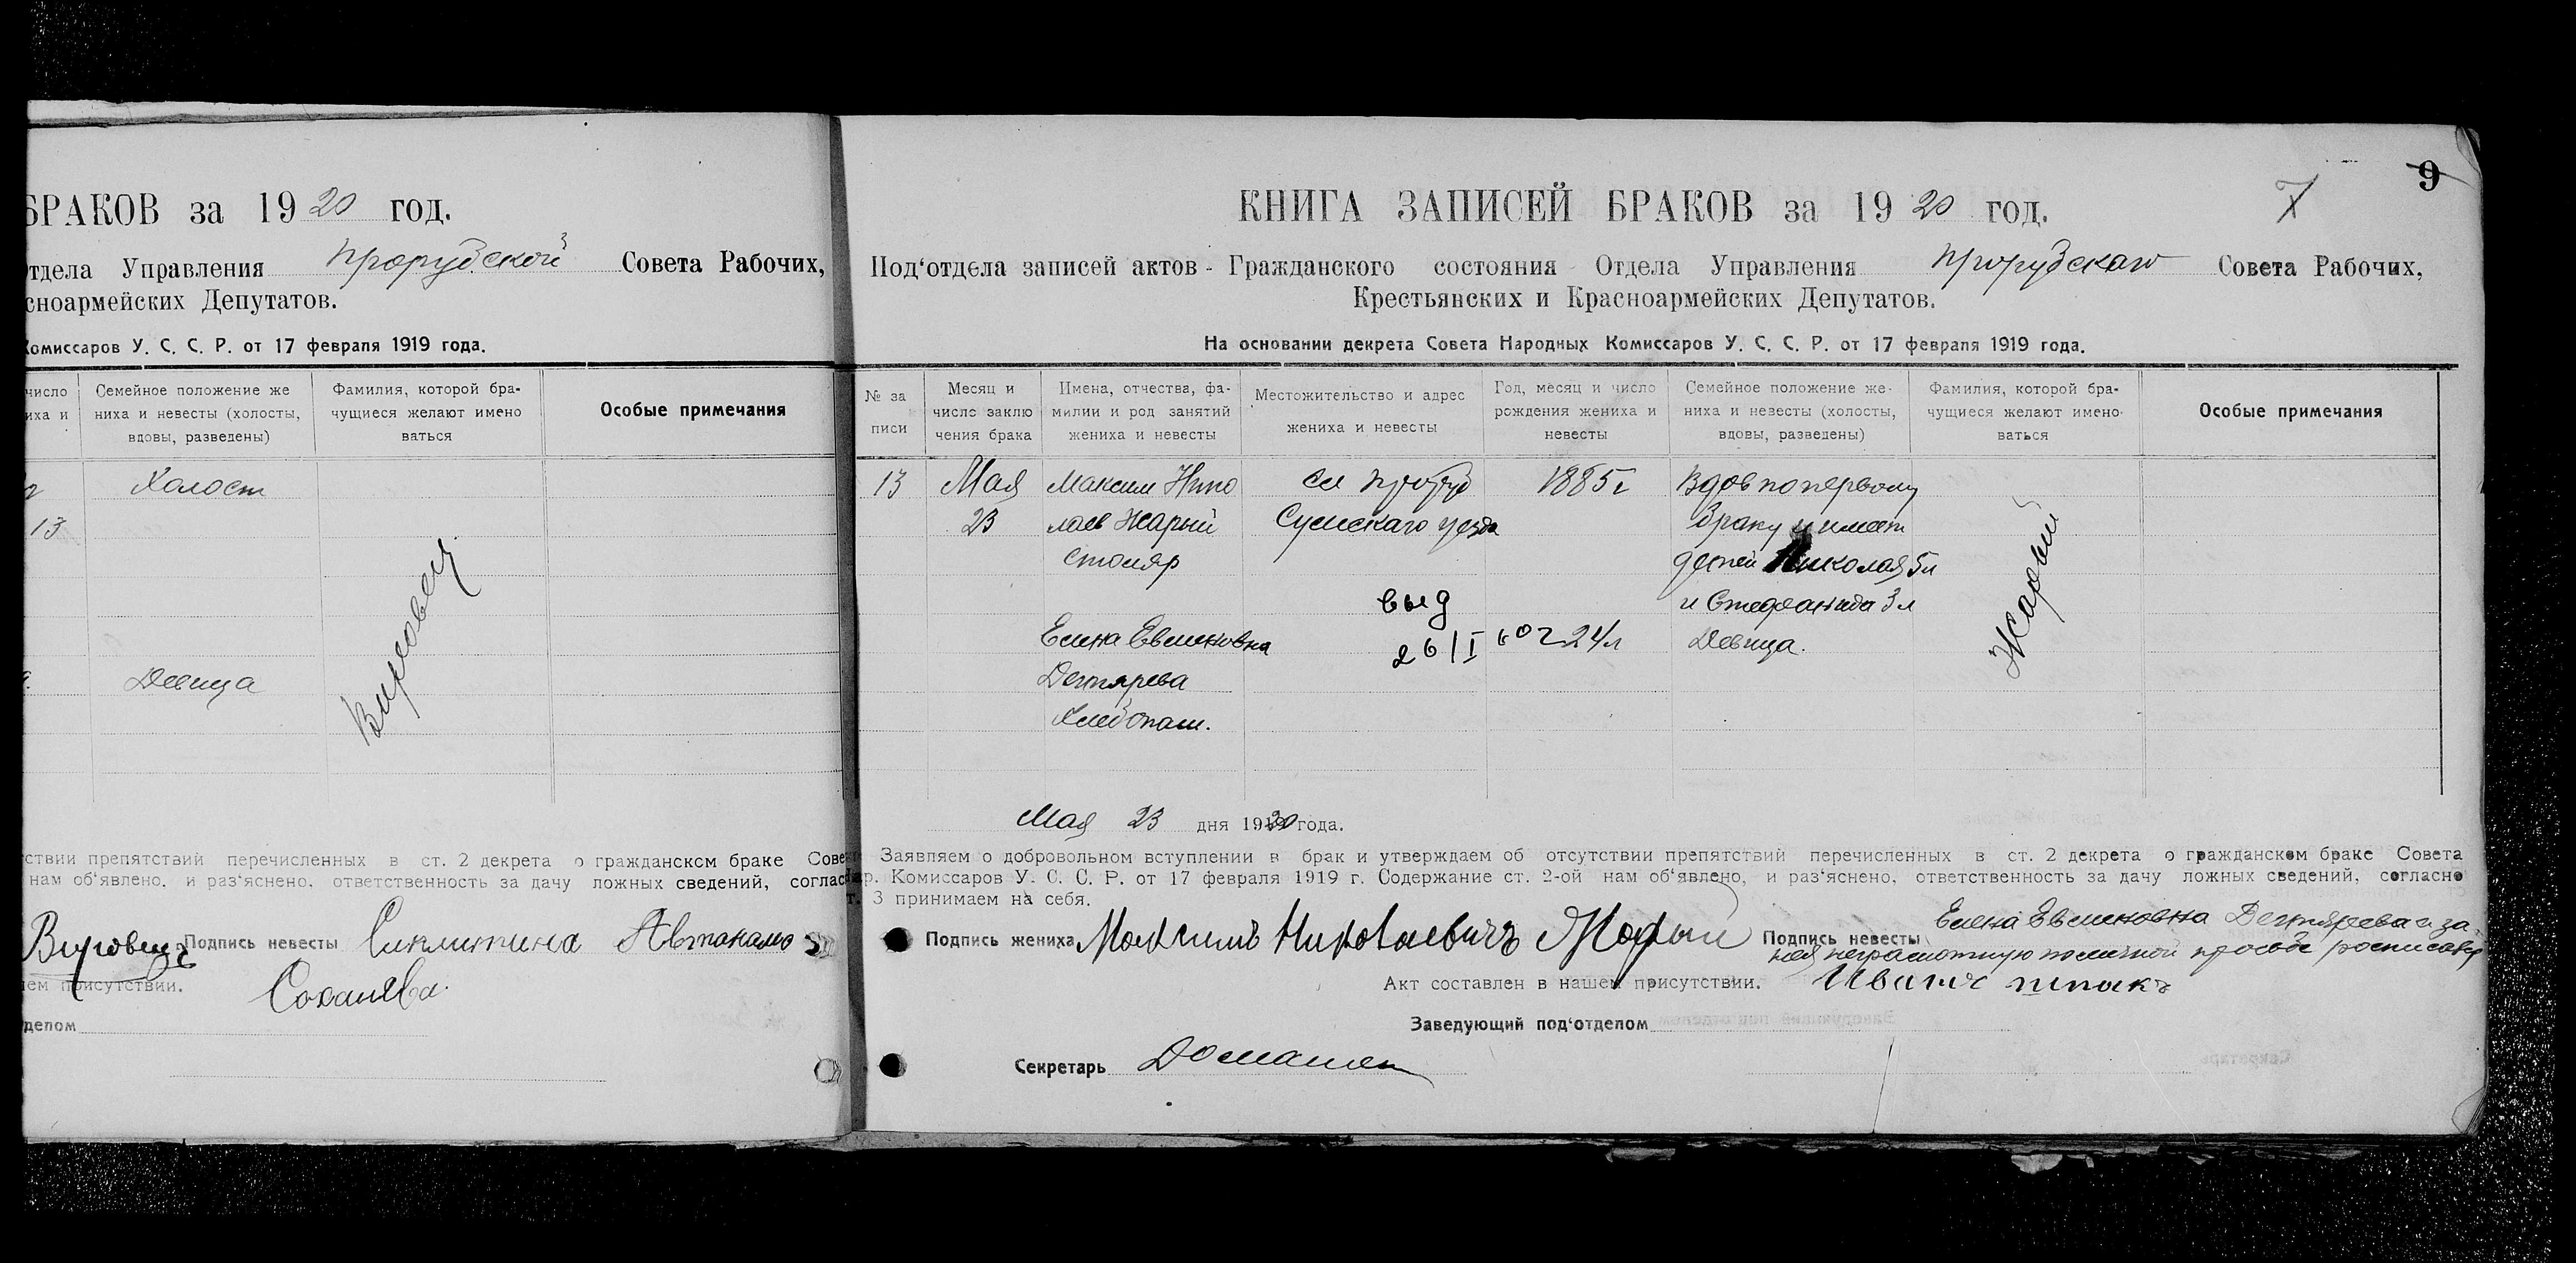 БРАКОВ за 1920 год.
Отдела Управления Прорубской Совета Рабочих,
сноармейских Депутатов.
Комиссаров У. С. С. Р. от 17 февраля 1919 года.
число
иха и
Семейное положение же
ниха и невесты (холосты,
вдовы, разведены)
Фамилия, которой бра-
чущиеся желают имено
ваться
Особые примечания
Холост
13
Девица
Вировец
ствии препятствий перечисленных в ст. 2 декрета о гражданском браке Сове
нам об‘явлено, и раз‘яснено, ответственность за дачу ложных сведений, соглас
Вировец Подпись невесты
ем присутствии.
делом
9
7
КНИГА ЗАПИСЕЙ БРАКОВ за 1920 год.
Под‘отдела записей актов - Гражданского состояния Отдела Управления Прорубскаго Совета Рабочих,
Крестьянских и Красноармейских Депутатов.
На основании декрета Совета Народных Комиссаров У. С. С. Р. от 17 февраля 1919 года.
№ за
писи
Месяц и
число заклю
чения брака
Имена, отчества, фа-
милии и род занятий
жениха и невесты
Местожительство и адрес
жениха и невесты
Год, месяц и число
рождения жениха и
невесты
Семейное положение же-
ниха и невесты (холосты,
вдовы, разведены)
Фамилия, которой бра-
чущиеся желают имено-
ваться
Особые примечания
13 Мая Максим Нико 1885 г Вдов по первому
23 лаев Жарый Сумскаго уезда браку и имеет
столяр детей Николая 5 л
выд и Стефанида 3 л
Елена 26/I 60 г 24 л Девица.
Дегтярева
Хлебопаш.
Жарый
Мая 23 дня 1920 года.
Заявляем о добровольном вступлении в брак и утверждаем об отсутствии препятствий перечисленных в ст. 2 декрета о гражданском браке Совета
Нар. Комиссаров У. С. С. Р. от 17 февраля 1919 г. Содержание ст. 2-ой нам об‘явлено, и раз‘яснено, ответственность за дачу ложных сведений, согласно
т. 3 принимаем на себя.
Подпись жениха Максимъ Николаевичъ Жарый Подпись невесты Елена Дегтярева а за
нея неграмотную по личной просьбе росписався
Акт составлен в нашем присутствии. Иванъ шпакъ
Заведующий под‘отделом
Секретарь